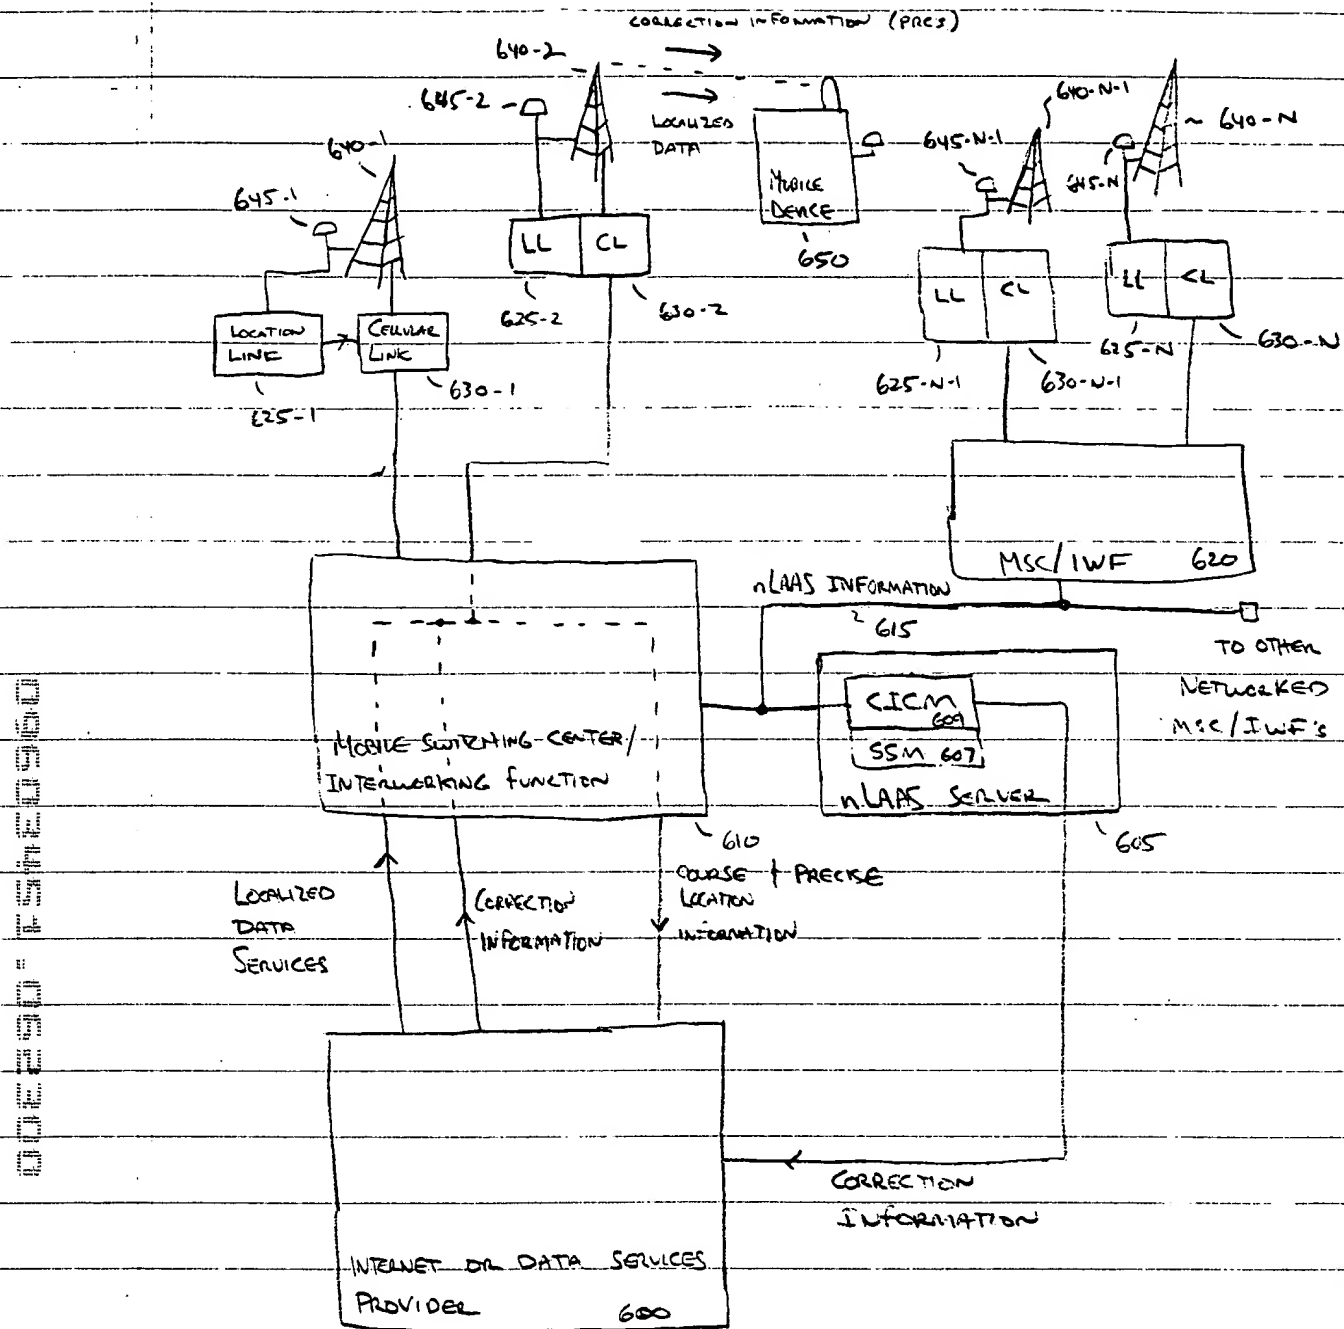 CORRECTION INFORMATION (PRCS)
640-2
645-2
LOCALIZED
DATA
640-N-1
640-N
645-N-1
645-N
640-1
645-1
MOBILE
DEVICE
650
LL
CL
LL
CL
LL
CL
625-2
630-2
LOCATION
LINK
CELLULAR
LINK
625-N
630-N
625-N-1
630-N-1
625-1
630-1
MSC/IWF 620
nLAAS INFORMATION
615
TO OTHER
NETWORKED
MSC/IWF'S
CICM
609
SSM 607
nLAAS SERVER
605
MOBILE SWITCHING CENTER/
INTERWORKING FUNCTION
610
LOCALIZED
DATA
SERVICES
CORRECTION
INFORMATION
COURSE + PRECISE
LOCATION
INFORMATION
CORRECTION
INFORMATION
INTERNET OR DATA SERVICES
PROVIDER 600